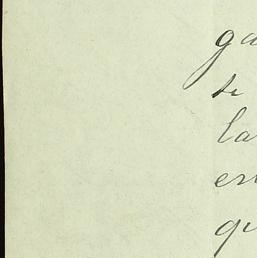 ga
se
la
en
qu